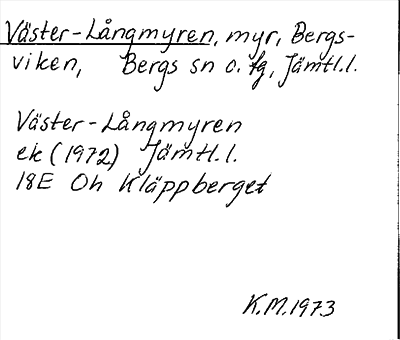 Väster-Långmyren, myr, Bergs-
viken, Bergs sn o. tg, Jämtl.l.
Väster-Långmyren
ek (1972) Jämtl.l.
18E Oh Kläppberget
K.M.1973